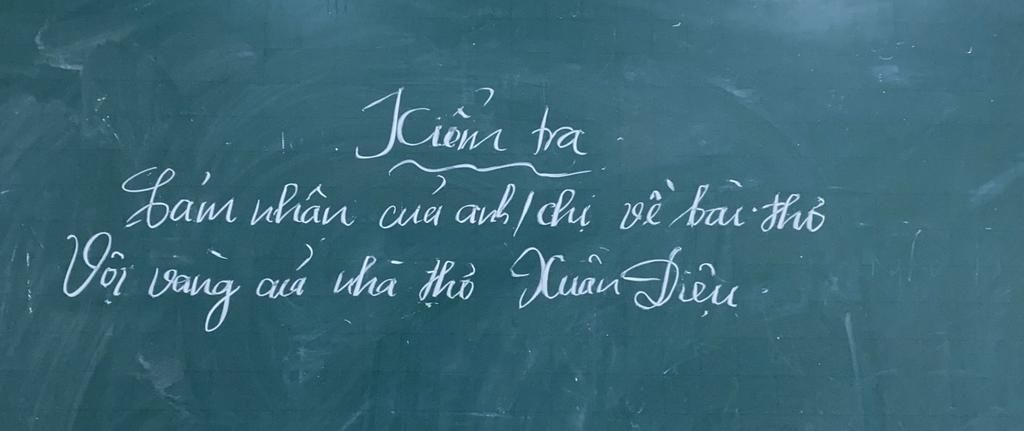 Kiểm tra
Cảm nhận của anh/chị về bài thơ
Vội vàng của nhà thơ Xuân Diệu.